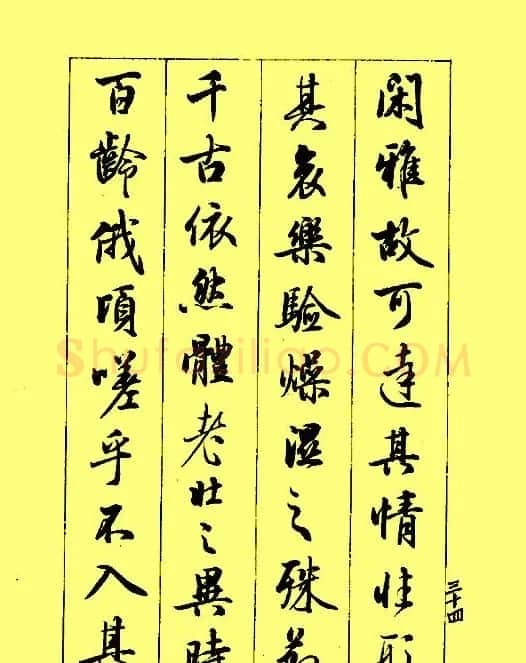 闲雅故可達其情性形
其哀樂驗燥濕之殊節
千古依然體老壯之異時
百齡俄頃嗟乎不入其
三十四
Shufaziliao.COM